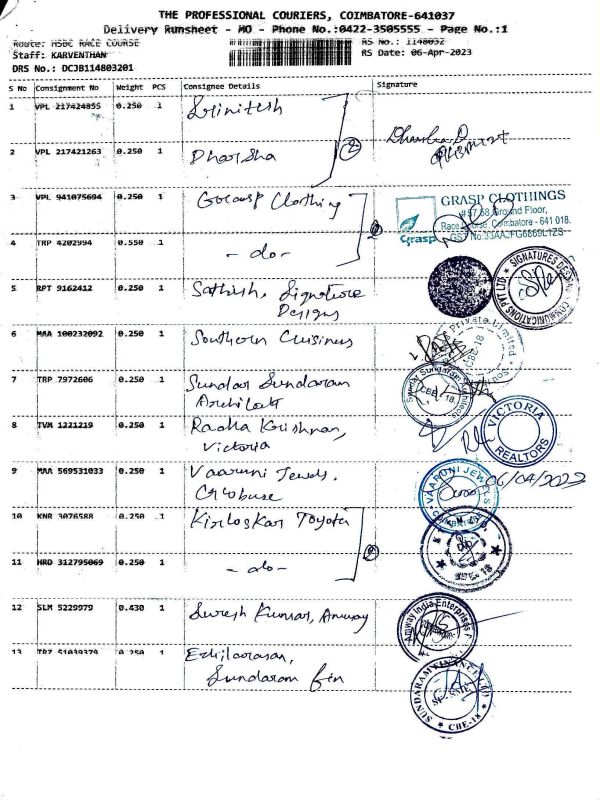 THE PROFESSIONAL COURIERS, COIMBATORE-641037
Delivery Runsheet - MO - Phone No.:0422-3505555 - Page No.:1
Route: HSBC RACE COURSE RS No.: 1148032
Staff: KARVENTHAN RS Date: 06-Apr-2023
DRS No.: DCJB114803201
S No Consignment No Weight PCS Consignee Details Signature
1 VPL 217424855 0.250 1 Srinitesh
2 VPL 217421263 0.250 1 Dharsha 2
3 VPL 941075694 0.250 1 Gocasp Clothing
GRASP CLOTHINGS
Ground Floor,
Race Course, Coimbatore - 641 018.
Grasp
4 TRP 4202994 0.550 1 - do -
5 RPT 9162412 0.250 1 Sathish, Signature
Designs
SIGNATURES DESIGN COMMUNICATIONS PVT LTD.
6 MAA 100232092 0.250 1 Southern Cuisines
Private Limited
CBE-18
7 TRP 7972606 0.250 1 Sundar Sundaram
Architect
CBE-18.
8 TVM 1221219 0.250 1 Radha Krishnan,
Victoria
VICTORIA
REALTORS
9 MAA 569531033 0.250 1 Vaaruni Jewels.
VAARUNI JEWELS
COIMBATORE
06/04/2023
10 KNR 3076588 0.250 1 Kirloskar Toyota
11 HRD 312795069 0.250 1 - do -
12 SLM 5229979 0.430 1 Suresh Kumar, Amway
Amway India Enterprises
13 TRZ 51039379 0.250 1 Ezhilarasan,
Sundaram fin
SUNDARAM FINANCE LTD
CBE-18